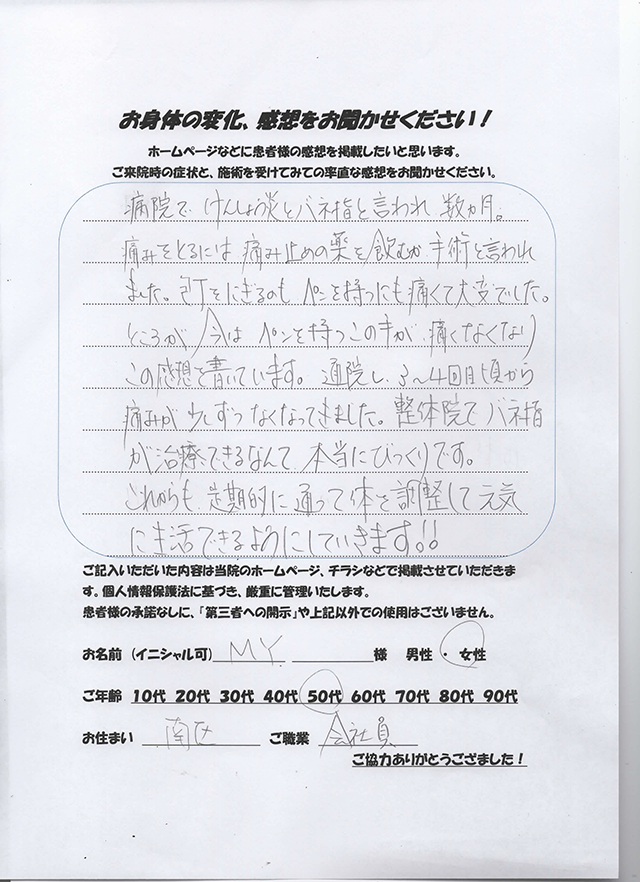 お身体の変化、感想をお聞かせください！
ホームページなどに患者様の感想を掲載したいと思います。
ご来院時の症状と、施術を受けてみての率直な感想をお聞かせください。
病院で けんしょう炎とバネ指と言われ 数カ月。
痛みをとるには 痛み止めの薬を飲むか 手術と言われ
ました。包丁をにぎるのも ペンを持つにも痛くて大変でした。
ところが 今は ペンを持つこの手が 痛くなくなり
この感想を書いています。 通院し、3〜4回目頃から
痛みが 少しずつ なくなってきました。整体院で バネ指
が治療できるなんて 本当にびっくりです。
これからも 定期的に 通って体を調整して 元気
に生活できるようにしていきます!!
ご記入いただいた内容は当院のホームページ、チラシなどで掲載させていただきま
す。個人情報保護法に基づき、厳重に管理いたします。
患者様の承諾なしに、「第三者への開示」や上記以外での使用はございません。
お名前（イニシャル可） M.Y. 様 男性 ・ 女性
ご年齢 10代 20代 30代 40代 50代 60代 70代 80代 90代
お住まい 南区 ご職業 会社員
ご協力ありがとうござました！